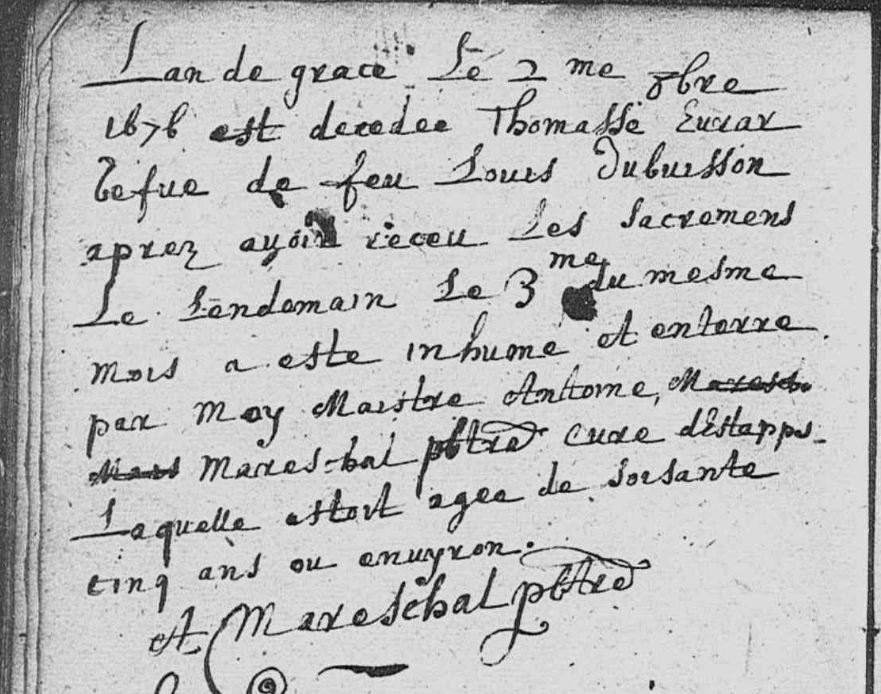 Lan de grace Le 2 me 8bre
1676 est decedee Thomasse Eurar
Vefue de feu Louis Dubuisson
aprez ayoir receu Les sacremens
Le Lendemain Le 3 me du mesme
mois a este inhume et enterre
par moy Maistre Antoine, Maresch
Mares Mareschal pbtre cure dEstapps
Laquelle estoit agee de soisante
cinq ans ou enuyron.
A Mareschal pbtre